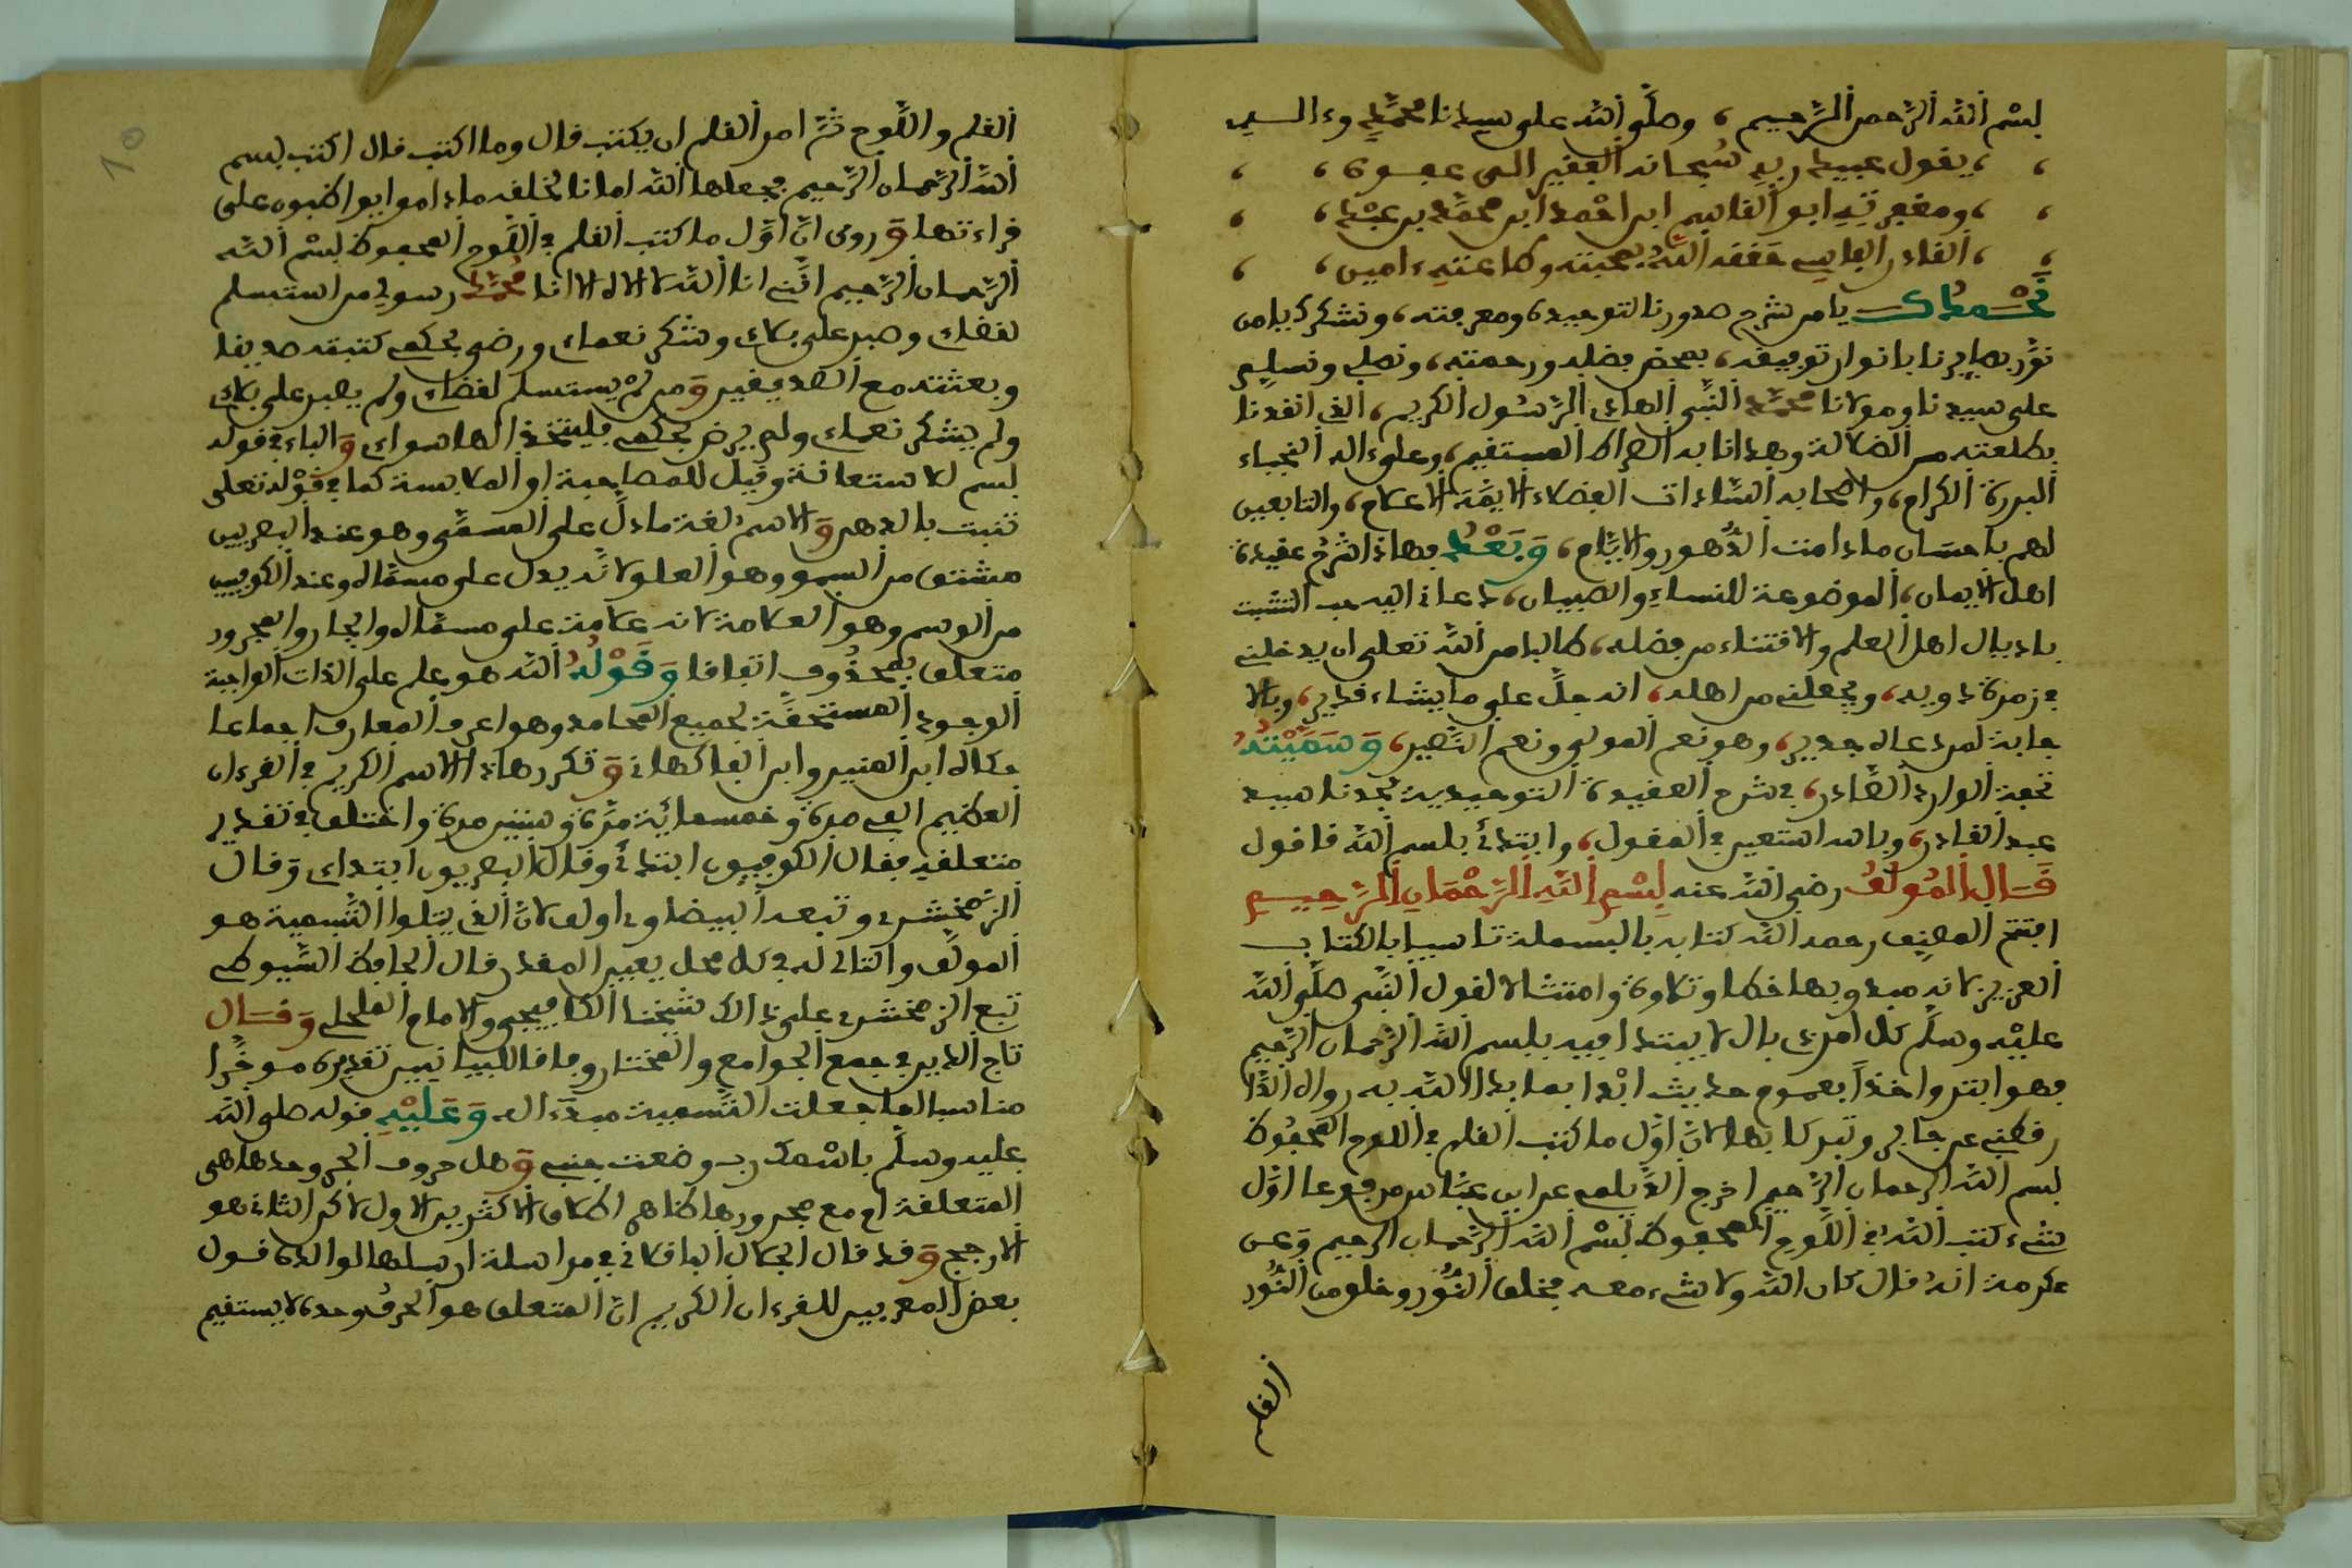 بسم الله الرحمن الرحيم، وصلى الله على سيدنا محمد وءاله
، ، يقول عبيد ربه سبحانه الفقير الى عفوه ، ،
، ، ومغفرته ابو القاسم ابن احمد ابن محمد بن عبد ، ،
، ، القادر الفاسي حققه الله بمحبته وطاعته ءامين ، ،
نحمدك يا من شرح صدورنا لتوحيده ومعرفته، ونشكرك يا من
نور بصايرنا بانوار توفيقه، بمحض فضله ورحمته، ونصلي ونسلم
على سيدنا ومولانا محمد النبي الهادي الرسول الكريم، الذي انقذنا
بطلعته من الضلالة وهدانا به الصراط المستقيم، وعلى ءاله النجباء
البررة الكرام، واصحابه السادات الفضلاء الايمة الاعلام، والتابعين
لهم باحسان ما دامت الدهور والايام، وبعد فهاذا شرح عقيدة
اهل الايمان، الموضوعة للنساء والصبيان، دعاني اليه حب التشبث
باذيال اهل العلم والاقتناء من فضله، طالبا من الله تعلى ان يدخلني
في زمرة ذويه، ويجعلني من اهله، انه جل على ما يشاء قدير، وبالا
جابة لمن دعاه جدير، وهو نعم المولى ونعم النصير، وسميته
تحفة الوارد الصادر، في شرح العقيدة التوحيدية لجدنا سيد
عبد القادر، وبالله استعين في المقول، وابتدئ بلسم الله فاقول
قال المولف رضي الله عنه بسم الله الرحمان الرحيم
افتتح المصنف رحمه الله كتابه بالبسملة تاسيا بالكتاب
العزيز لانه مبدو بها خطا وتلاوة وامتثالا لقول النبي صلى الله
عليه وسلم كل امر ذي بال لا يبتدا فيه بلسم الله الرحمان الرحيم
فهو ابتر واخذا بعموم حديث ابدا بما بدا الله به رواه الدا
رقطني عن جابر وتبركا بها لان اول ما كتب القلم في اللوح المحفوظ
بسم الله الرحمان الرحيم اخرج الديلمي عن ابن عباس مرفوعا اول
شيء كتب الله في اللوح المحفوظ بسم الله الرحمان الرحيم وعن
عكرمة انه قال كان الله ولا شيء معه فخلق النور وخلق من النور
القلم
10
القلم واللوح ثم امر القلم ان يكتب قال وما اكتب قال اكتب بسم
الله الرحمان الرحيم فجعلها الله امانا لخلقه ما داموا يواظبون على
قراءتها وروي ان اول ما كتب القلم في اللوح المحفوظ بسم الله
الرحمان الرحيم انني انا الله لا اله الا انا محمد رسولي من استسلم
لقضاءي وصبر على بلاءي وشكر نعماءي ورضي بحكمي كتبته صديقا
وبعثته مع الصديقين ومن لم يستسلم لقضاءي ولم يصبر على بلاءي
ولم يشكر نعماءي ولم يرض بحكمي فليتخذ الها سواءي والباء في قوله
بسم للاستعانة وقيل للمصاحبة او الملابسة كما في قوله تعلى
تنبت بالدهن والاسم لغة ما دل على المسمى وهو عند البصريين
مشتق من السمو وهو العلو لانه يدل على مسماه وعند الكوفيين
من الوسم وهو العلامة لانه علامة على مسماه والجار والمجرور
متعلق بمحذوف اتفاقا وقوله الله هو علم على الذات الواجبة
الوجود المستحقة لجميع المحامد وهو اعرف المعارف اجماعا
حكاه ابن المنير وابن الفاكهاني وتكرر هاذا الاسم الكريم في القرءان
العظيم الفي مرة وخمسمائة مرة وستين مرة واختلف في تقدير
متعلقه فقال الكوفيون ابتدئ وقال البصريون ابتداءي وقال
الزمخشري وتبعه البيضاوي اولف لان الذي يتلوا التسمية هو
المولف والتالي له في كل محل يعيين المقدر قال الحافظ السيوطي
تبع الزمخشري على ذالك شيخنا الكافيجي والامام المحلي وقال
تاج الدين في جمع الجوامع والمختار وفاقا للبيانيين تقديره موخرا
مناسبا لما جعلت التسمية مبدءا له وعليه قوله صلى الله
عليه وسلم باسمك رب وضعت جنبي وهل حروف الجر وحدها هي
المتعلقة او مع مجرورها ظاهر اطلاق الاكثرين الاول لاكن الثاني هو
الارجح وقد قال الجلال البلقاني في مراسلة ارسلها لوالده قول
بعض المعربين للقرءان الكريم ان المتعلق هو الحرف وحده لا يستقيم